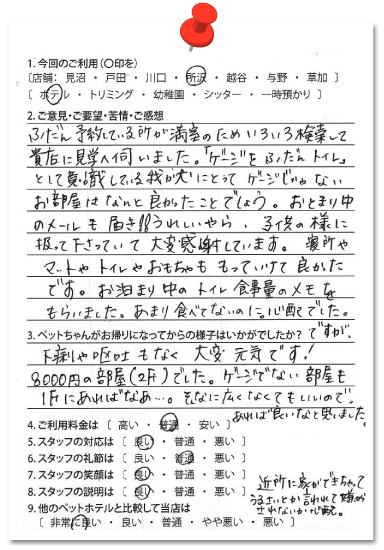 1. 今回のご利用(〇印を)
〔店舗: 見沼 ・ 戸田 ・ 川口 ・ 所沢 ・ 越谷 ・ 与野 ・ 草加 〕
〔 ホテル ・ トリミング ・ 幼稚園 ・ シッター ・ 一時預かり 〕
2. ご意見・ご要望・苦情・ご感想
ふだん予約している所が満室のためいろいろ検索して
貴店に見学へ伺いました。「ゲージをふだんトイレ」
として意識している我が犬にとってゲージじゃない
お部屋はなんと良かったことでしょう。おとまり中
のメールも届き!!うれしいやら、子供の様に
扱って下さっていて大変感謝しています。寝所や
マットやトイレやおもちゃも もっていけて良かった
です。お泊まり中のトイレ食事量のメモを
もらいました。あまり食べてないのに心配でした。
3. ペットちゃんがお帰りになってからの様子はいかがでしたか? ですが、
下痢や嘔吐もなく 大変元気です!
8000円の部屋(2F)でした。ゲージでない部屋も
1Fにあればなあ…。そんなに広くなくてもいいので、
あれば良いなと思いました。
4. ご利用料金は 〔 高い ・ 普通 ・ 安い 〕
5. スタッフの対応は 〔 良い ・ 普通 ・ 悪い 〕
6. スタッフの礼節は 〔 良い ・ 普通 ・ 悪い 〕
7. スタッフの笑顔は 〔 良い ・ 普通 ・ 悪い 〕
8. スタッフの説明は 〔 良い ・ 普通 ・ 悪い 〕
近所に家ができちゃって
うるさいとか言われて
されないか心配。
9. 他のペットホテルと比較して当店は
〔 非常に良い ・ 良い ・ 普通 ・ やや悪い ・ 悪い 〕